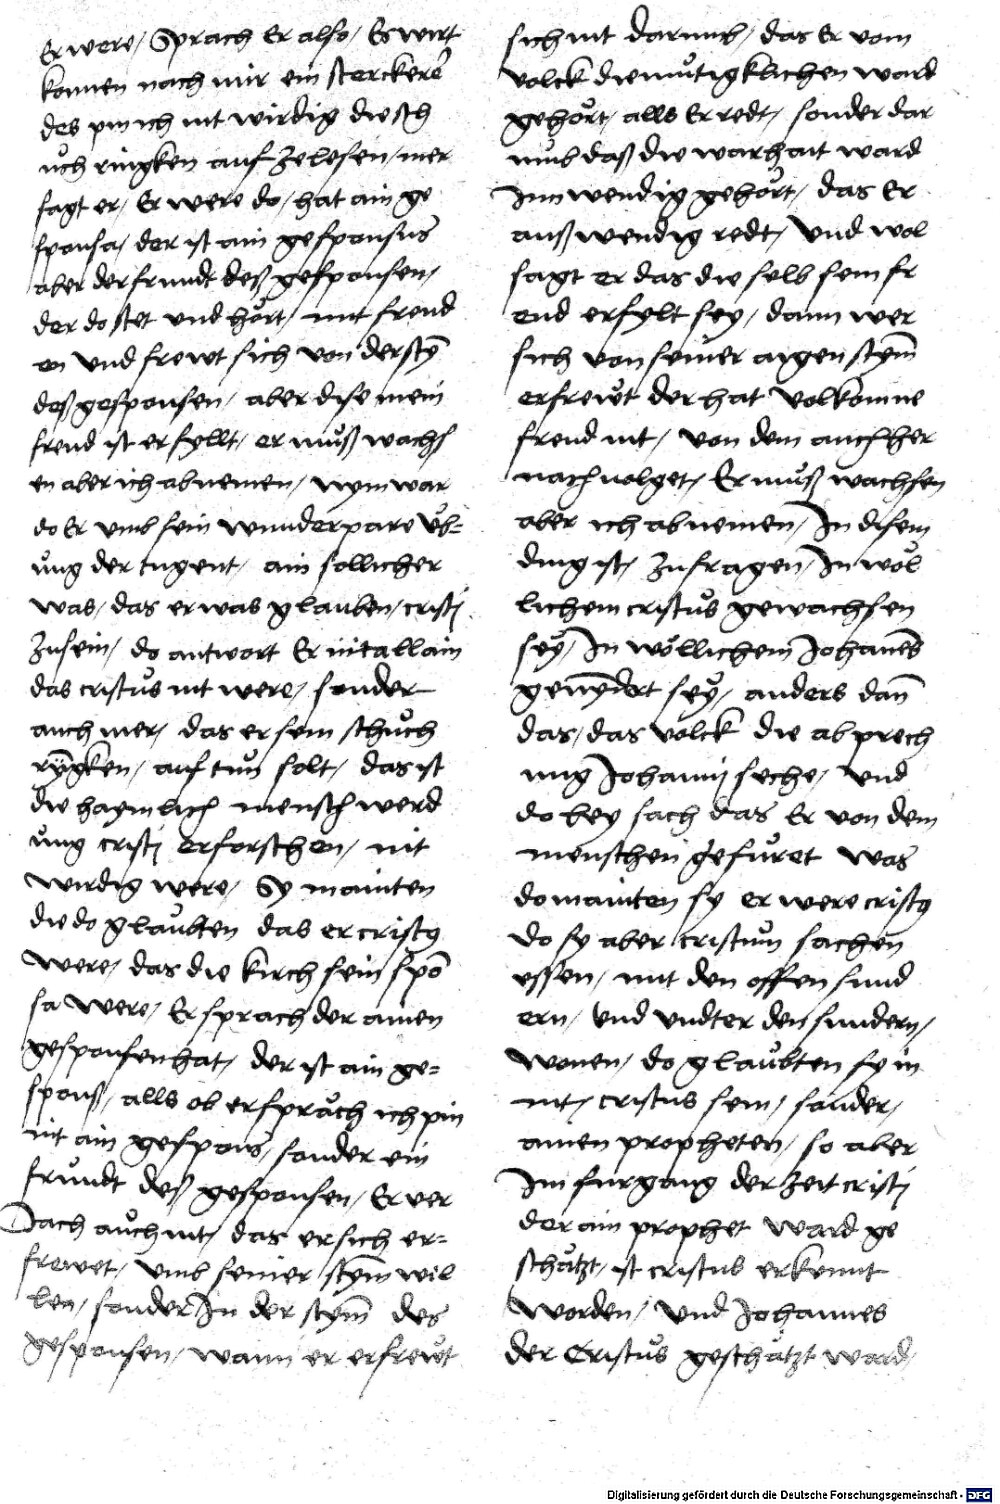 Er were / Sprach Er also / Es wirt
komen nach mir ein sterckere
des pin ich nit wirdig die sch
uch ringken auf ze lesen / mer
sagt er / Er were do / hat ain ge
sponsa / der ist ain gesponsus
aber der frundt deß gesponsen /
der do stet und hört / mit freud
en und frewt sich von der stȳ
deß gesponsen / aber dise mein
freud ist erfyllt / er muß wachs
en aber ich abnemen / wym war
do Er umb sein wunderpare üb=
ung der tugent / ain sollicher
was / das er was glauben / cristi
zu sein / do antwort Er nit allain
das cristus nit were / sonder
auch mer / das er sein schuch
rȳgken / auf tun solt / das ist
die haymlich menschwerd
ung cristi erforschen / nit
wirdig were / Sy mainten
die do glaubten das er cristꝰ
were / das die kirch sein spō
sa were / Er sprach der ainen
gesponsen hat / der ist ain ge=
sponß / alls ob er spräch ich pin
nit ain gespons / sonder ein
frundt deß gesponsen / Er ver
Jach auch nit / das er sich er=
frewet / umb seiner stȳm wil
len / sonder In der stȳm des
gesponsen / wann er erfrewt
sich nit darumb / das Er vom
volck diemutigklichen ward
gehört / alls Er redt / sonder dar
umb daß die warhait ward
Innwendig gehört / das Er
außwendig redt / Und wol
sagt er das die selb sein fr
eud erfylt sey / dann wer
sich von seiner aygen stȳm
erfrewt der hat volkomne
freud nit / von dem auch her
nach volget / Er muß wachsen
aber ich abnemen / In disem
ding ist / zu fragen / In wöl
lichem cristus gewachsen
sey / In wöllichem Johannes
gemȳdert sey / anders dan̄
das / das volck die abprech
ung Johannis seche / und
do bey sach das Er von dem
menschen gefüret was
do mainten sy er were cristꝰ
do sy aber cristum sachen
essen / mit den offen sund
ern / und undter den sundern /
wonen / do glaubten sy in
nit / cristus sein / sonder /
ainen propheten / so aber
Im furgang der zeit cristi
der ain prophet ward ge
schätzt / ist cristus erkennt
worden / und Johannes
der Cristus geschätzt ward /
Digitalisierung gefördert durch die Deutsche Forschungsgemeinschaft - DFG